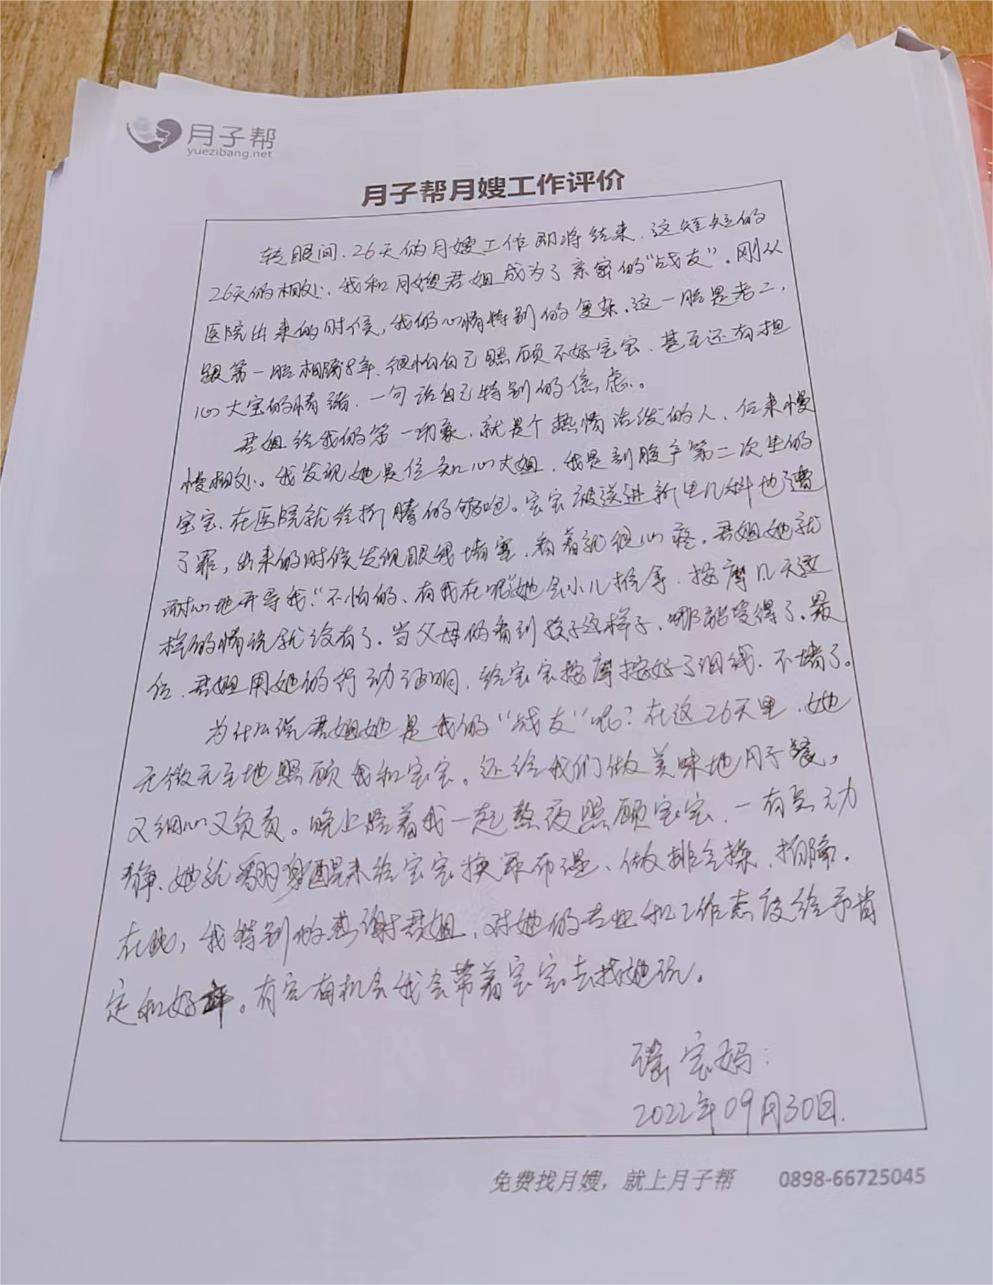 月子帮
yuezibang.net
月子帮月嫂工作评价
转眼间，26天的月嫂工作即将结束，这短短的
26天的相处，我和月嫂君姐成为了亲密的“战友”。刚从
医院出来的时候，我的心情特别的复杂，这一胎是老二，
跟第一胎相隔8年，很怕自己照顾不好宝宝，甚至还有担
心大宝的情绪，一句话自己特别的焦虑。
君姐给我的第一印象，就是个热情活泼的人，后来慢
慢相处，我发现她是位知心大姐，我是剖腹产第二次生的
宝宝，在医院就给折腾的够呛。宝宝被送进新生儿科也遭
了罪，出来的时候发现眼线堵塞，看着就很心疼。君姐她就
耐心地开导我：“不怕的、有我在呢”她会小儿推拿，按摩几天这
样的情况就没有了，当父母俩看到孩子这样子，哪能受得了，最
后，君姐用她的行动证明，给宝宝按摩按好了泪线，不堵了。
为什么说君姐她是我的“战友”呢？在这26天里，她
无微无至地照顾我和宝宝。还给我们做美味地月子餐，
又细心又负责。晚上陪着我一起熬夜照顾宝宝，一有点动
静，她就翻身醒来给宝宝换尿布湿、做排气操、拍嗝。
在此，我特别的感谢君姐，对她的专业和工作态度给予肯
定和好评。有空有机会我会带着宝宝去找她玩。
瑶宝妈：
2022年09月30日.
免费找月嫂，就上月子帮 0898-66725045